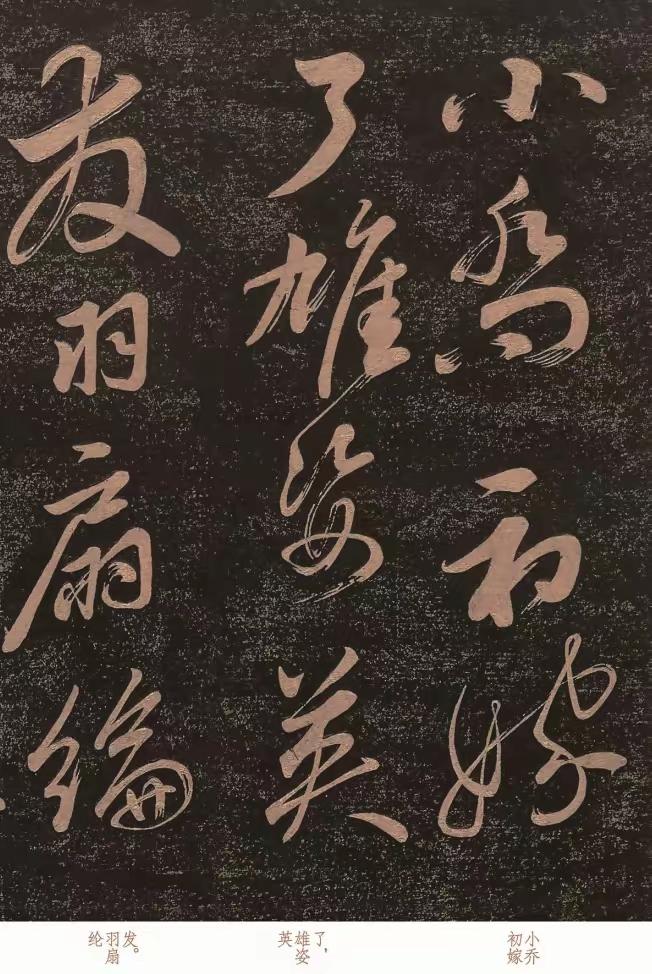 小乔初嫁
了雄姿英
发羽扇纶
小乔
初嫁
了，
雄姿
英
发。
羽扇
纶